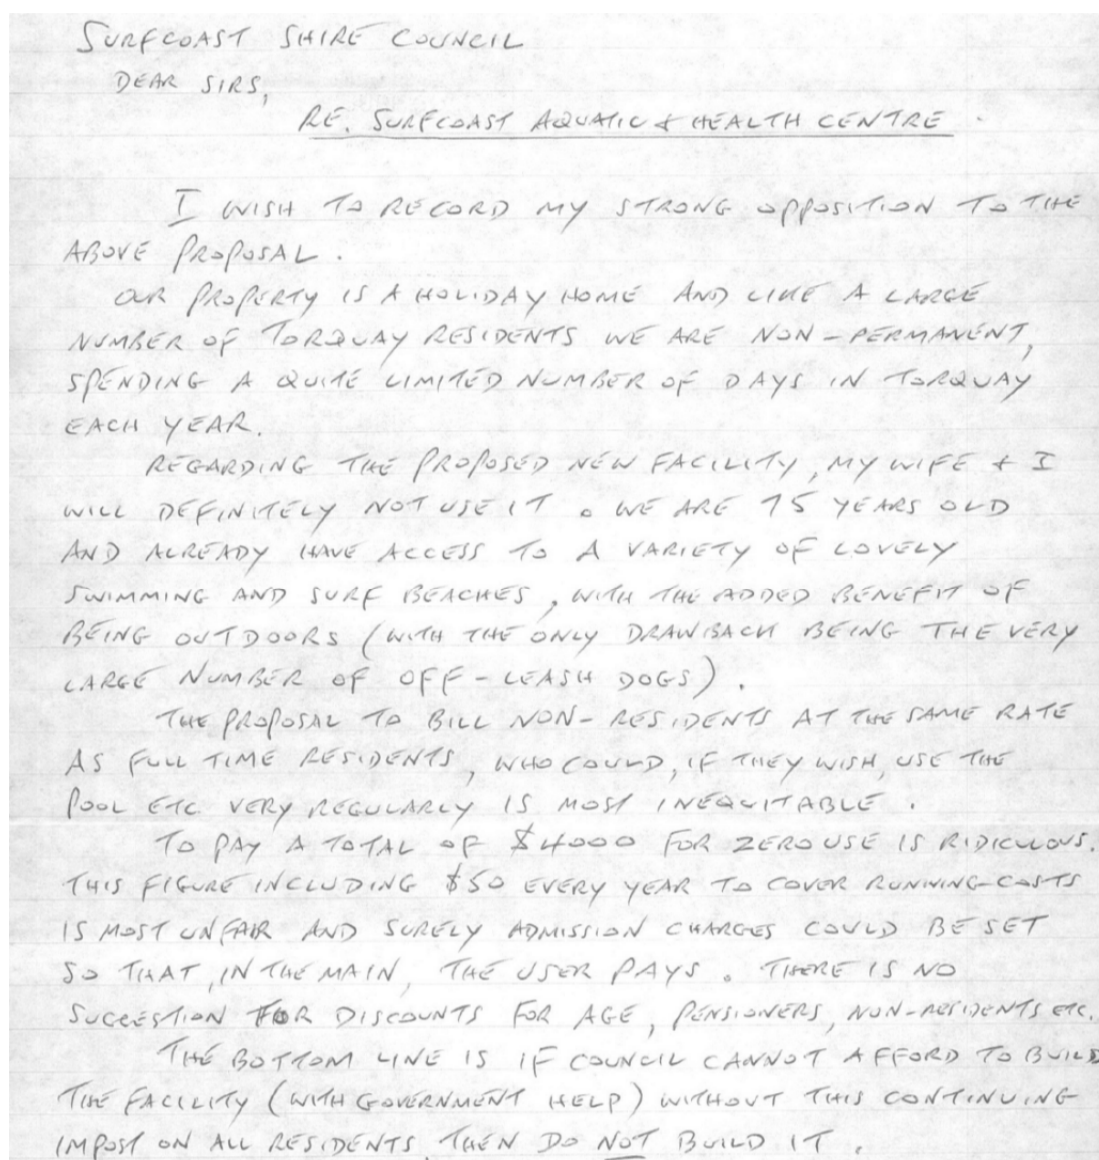 SURFCOAST SHIRE COUNCIL
DEAR SIRS,
RE. SURFCOAST AQUATIC & HEALTH CENTRE.
I WISH TO RECORD MY STRONG OPPOSITION TO THE
ABOVE PROPOSAL.
OUR PROPERTY IS A HOLIDAY HOME AND LIKE A LARGE
NUMBER OF TORQUAY RESIDENTS WE ARE NON-PERMANENT,
SPENDING A QUITE LIMITED NUMBER OF DAYS IN TORQUAY
EACH YEAR.
REGARDING THE PROPOSED NEW FACILITY, MY WIFE & I
WILL DEFINITELY NOT USE IT. WE ARE 75 YEARS OLD
AND ALREADY HAVE ACCESS TO A VARIETY OF LOVELY
SWIMMING AND SURF BEACHES, WITH THE ADDED BENEFIT OF
BEING OUTDOORS (WITH THE ONLY DRAWBACK BEING THE VERY
LARGE NUMBER OF OFF-LEASH DOGS).
THE PROPOSAL TO BILL NON-RESIDENTS AT THE SAME RATE
AS FULL TIME RESIDENTS, WHO COULD, IF THEY WISH, USE THE
POOL ETC. VERY REGULARLY IS MOST INEQUITABLE.
TO PAY A TOTAL OF $4000 FOR ZERO USE IS RIDICULOUS.
THIS FIGURE INCLUDING $50 EVERY YEAR TO COVER RUNNING-COSTS
IS MOST UNFAIR AND SURELY ADMISSION CHARGES COULD BE SET
SO THAT, IN THE MAIN, THE USER PAYS. THERE IS NO
SUGGESTION FOR DISCOUNTS FOR AGE, PENSIONERS, NON-RESIDENTS ETC.
THE BOTTOM LINE IS IF COUNCIL CANNOT AFFORD TO BUILD
THE FACILITY (WITH GOVERNMENT HELP) WITHOUT THIS CONTINUING
IMPOST ON ALL RESIDENTS, THEN DO NOT BUILD IT.